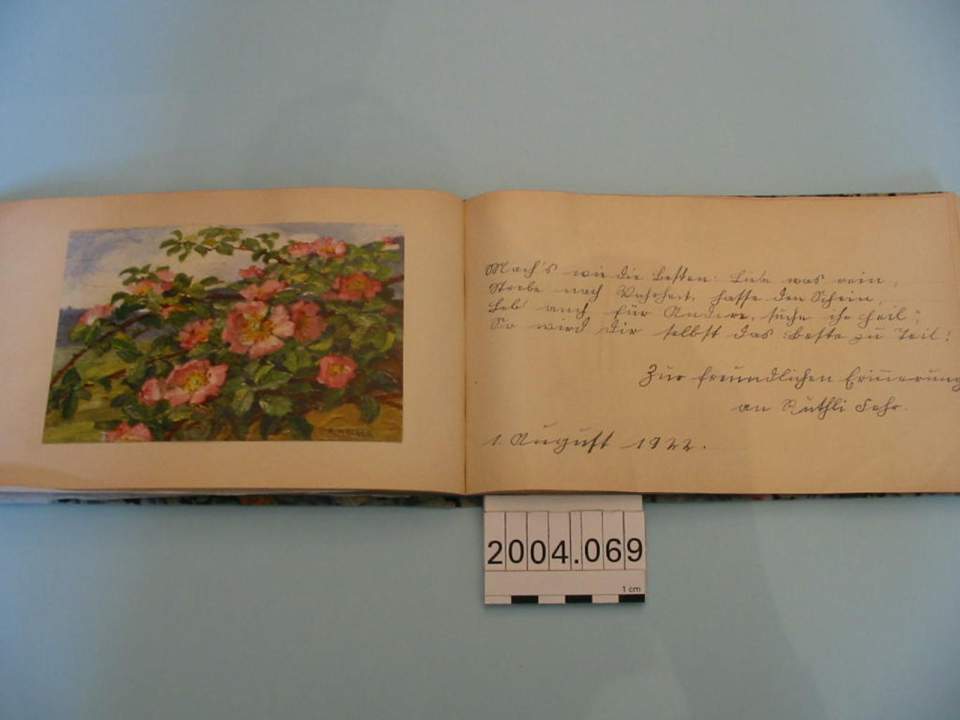 Mach's wie die Besten: Liebe was rein,
Strebe nach Wahrheit, hasse den Schein,
Leb' auch für Andere, suche ihr Heil;
So wird dir selbst das Beste zu Teil!
Zur freundlichen Erinnerung
an Ruthli Fehr.
1. August 1922.
2004.069
1 cm